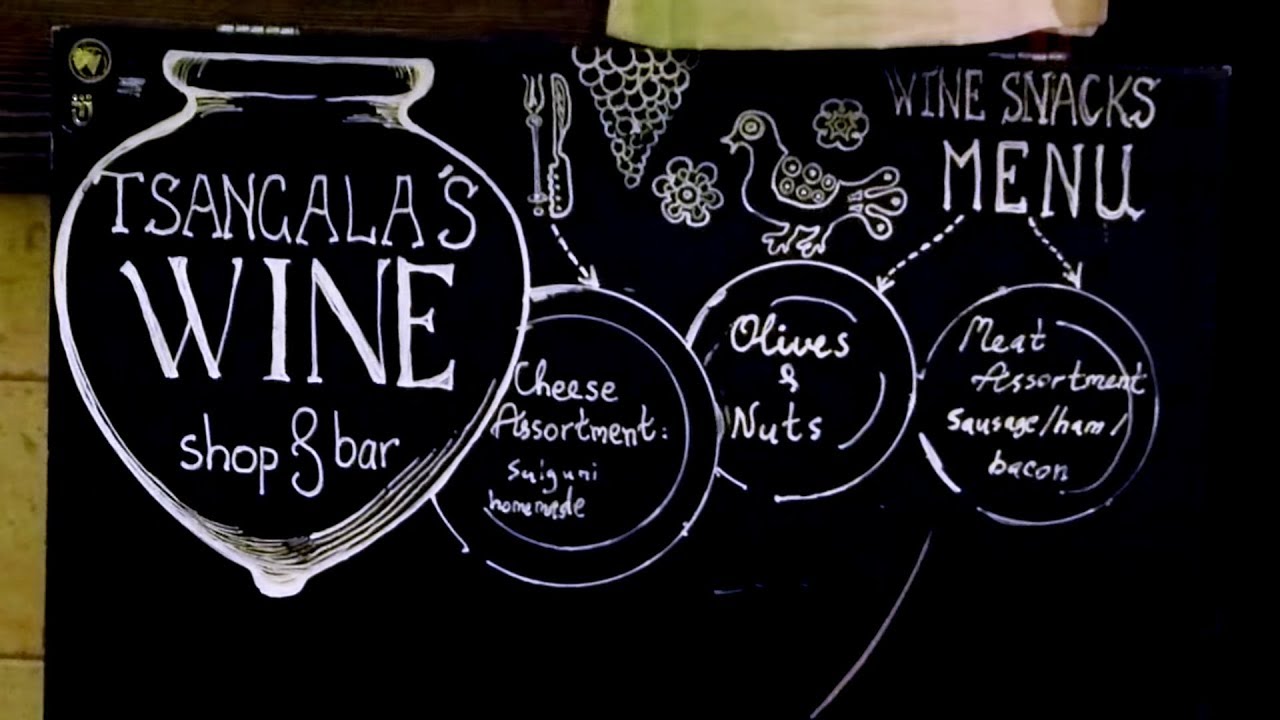 TSANGALA'S
WINE
shop & bar
WINE SNACKS
MENU
Cheese
Assortment:
Sulguni
homemade
Olives
&
Nuts
Meat
Assortment
sausage/ham/
bacon